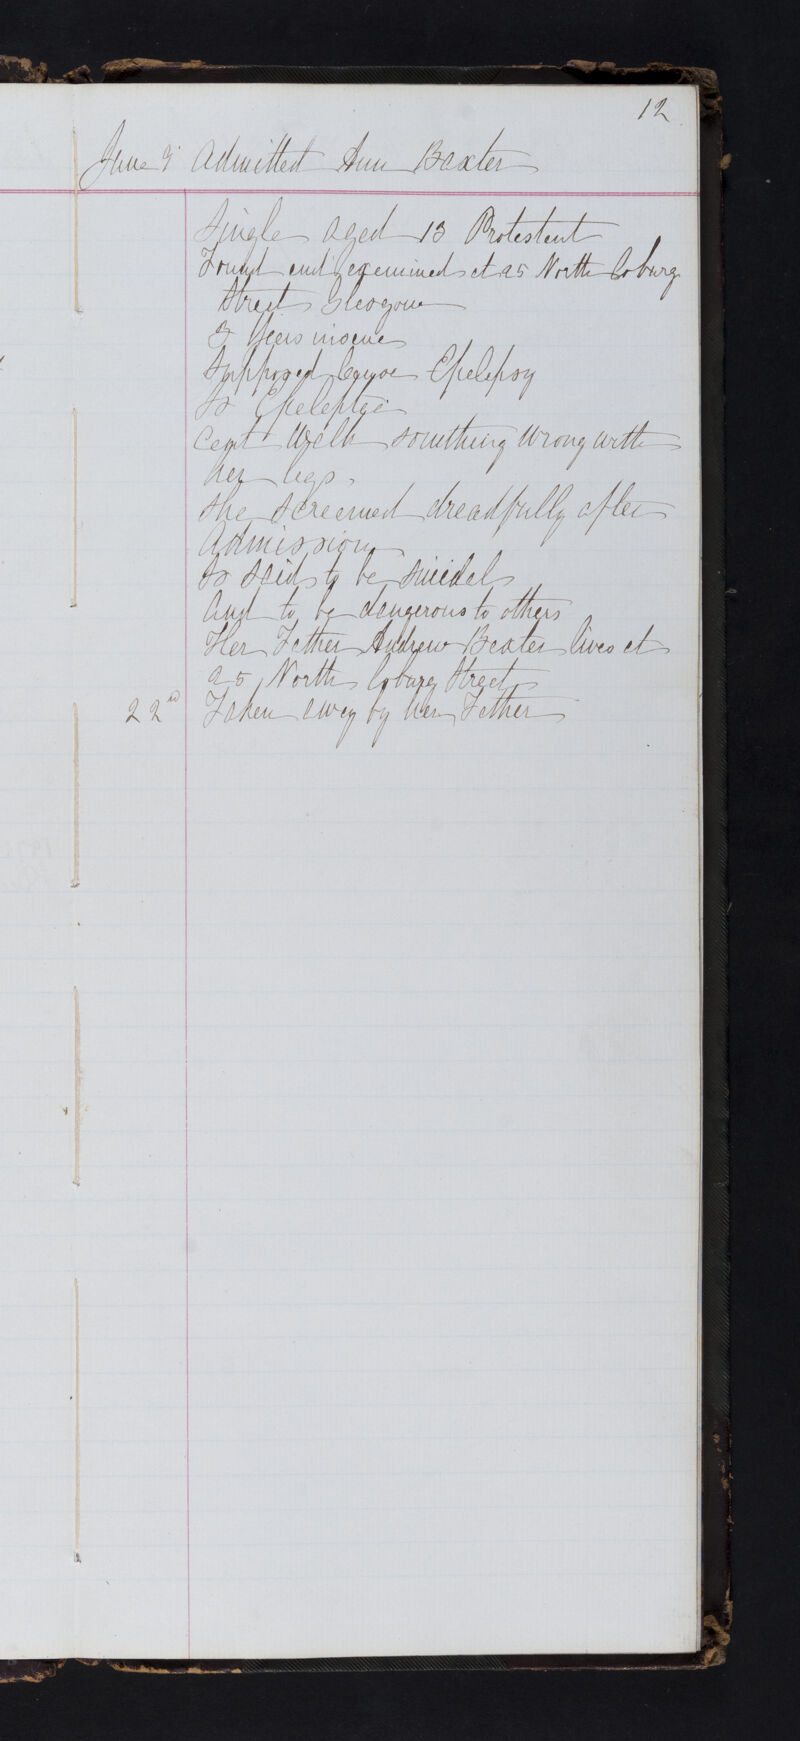 12
June 9 Admitted Ann Baxter
Single aged 13 Protestant
Found and examined at 25 North Coburg
Street Glasgow
Years insane
Supposed Cause Epelepsy
Is Epeleptic
Cant Walk something Wrong with
her legs.
She screamed dreadfully after
Admission
Is said to be suicidal
And to be dangerous to others
Her Father Andrew Baxter lives at
25 North Coburg Street
22nd Taken away by her Father